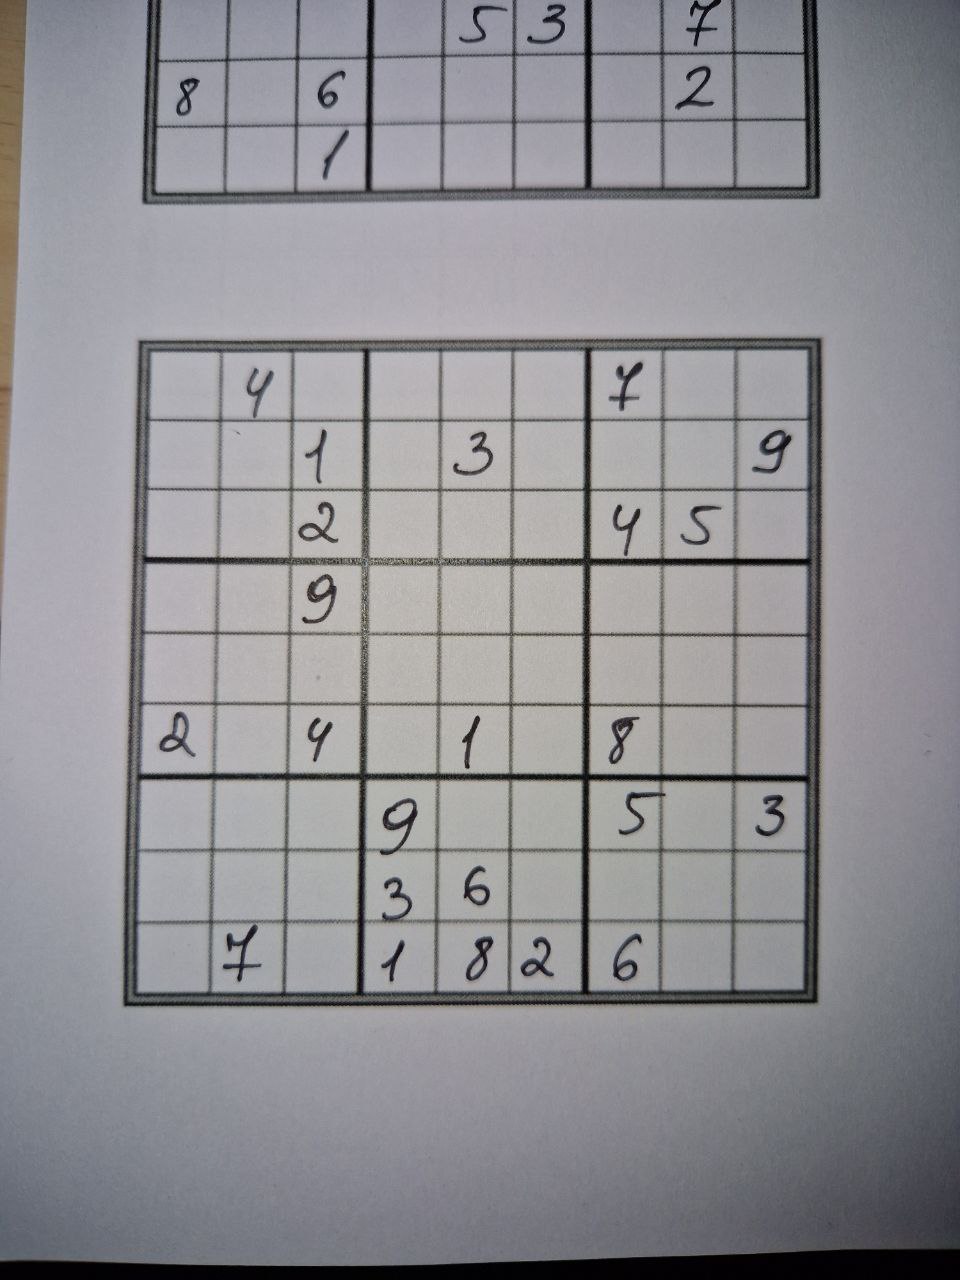 5 3 7
8 6 2
1
4 7
1 3 9
2 4 5
9
2 4 1 8
9 5 3
3 6
7 1 8 2 6